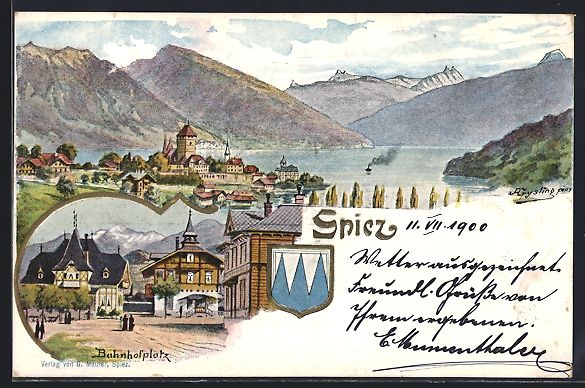 Spiez 11. VII. 1900
Wetter ausgezeichnet
Freundl. Grüße von
Ihrem ergebenen.
Bahnhofplatz
Verlag von G. Maurer, Spiez.